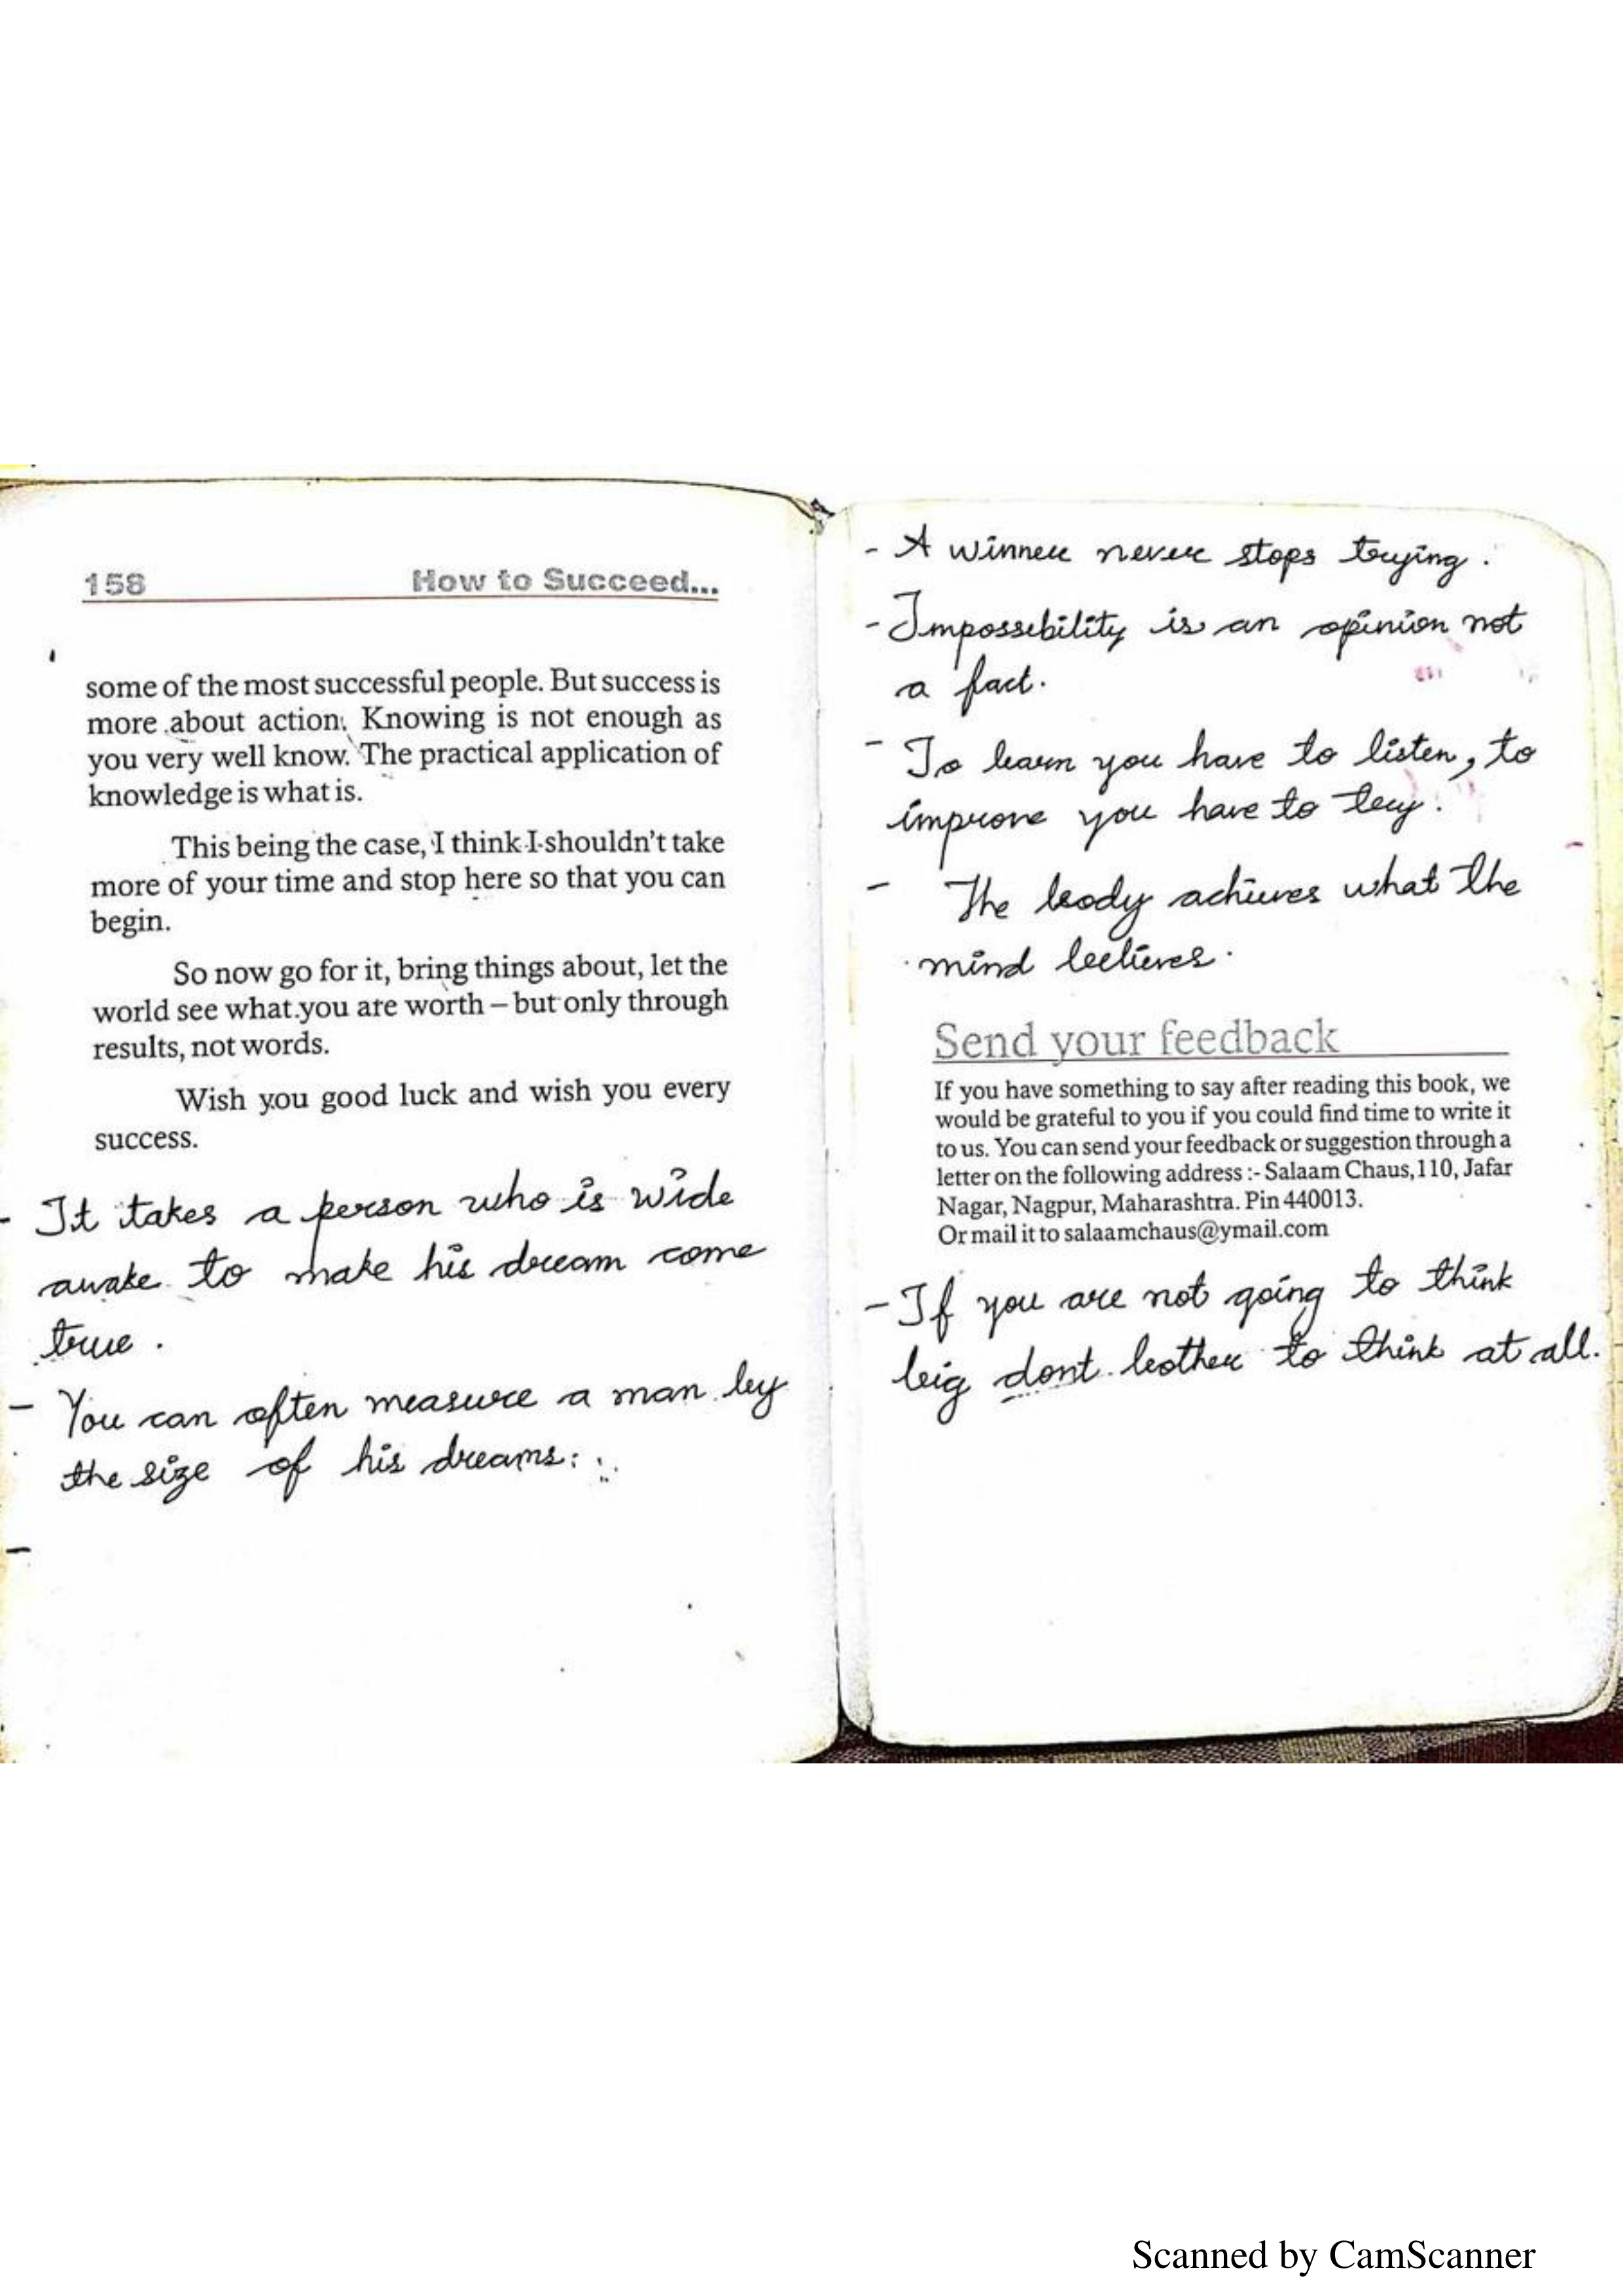 158 How to Succeed...
some of the most successful people. But success is
more about action. Knowing is not enough as
you very well know. The practical application of
knowledge is what is.
This being the case, I think I shouldn't take
more of your time and stop here so that you can
begin.
So now go for it, bring things about, let the
world see what you are worth – but only through
results, not words.
Wish you good luck and wish you every
success.
- It takes a person who is wide
awake to make his dream come
true.
- You can often measure a man by
the size of his dreams.
-
- A winner never stops trying.
- Impossibility is an opinion not
a fact.
- To learn you have to listen, to
improve you have to try.
- The body achieves what the
mind believes.
Send your feedback
If you have something to say after reading this book, we
would be grateful to you if you could find time to write it
to us. You can send your feedback or suggestion through a
letter on the following address :- Salaam Chaus,110, Jafar
Nagar, Nagpur, Maharashtra. Pin 440013.
Or mail it to salaamchaus@ymail.com
- If you are not going to think
big dont bother to think at all.
Scanned by CamScanner